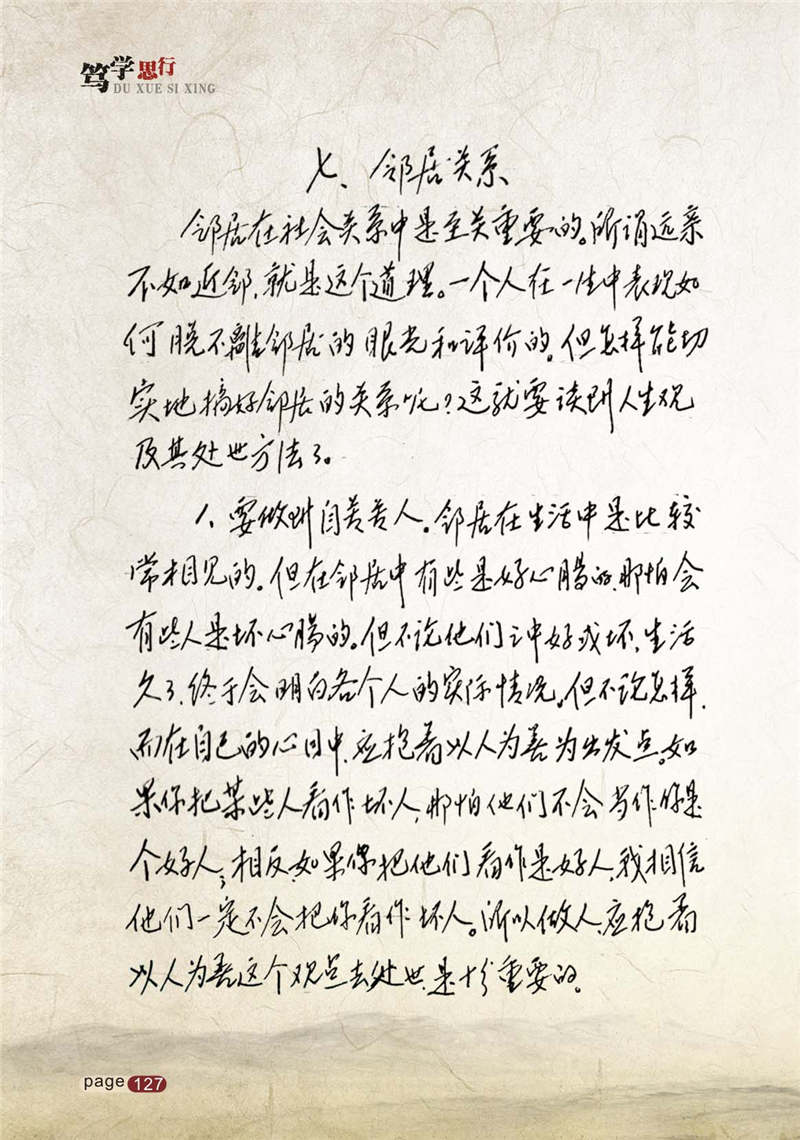 笃学思行
DU XUE SI XING
七、邻居关系
邻居在社会关系中是至关重要的。所谓远亲
不如近邻,就是这个道理。一个人在一生中表现如
何脱不离邻居的眼光和评价的。但怎样能切
实地搞好邻居的关系呢?这就要谈到人生观
及其处世方法了。
1、要做到自善善人。邻居在生活中是比较
常相见的。但在邻居中有些是好心肠的,那怕会
有些人是坏心肠的。但不说他们之中好或坏,生活
久了,终于会明白各个人的实际情况。但不说怎样,
而在自己的心目中,应抱着以人为善为出发点。如
果你把某些人看作坏人,那怕他们不会当作你是
个好人;相反,如果你把他们看作是好人,我相信
他们一定不会把你看作坏人。所以做人,应抱着
以人为善这个观点去处世,是十分重要的。
page 127